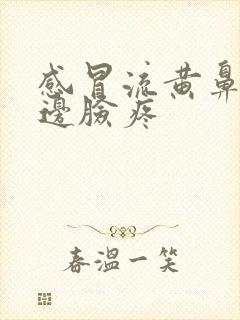 感冒流黄鼻
邊臉疼
春溫一笑